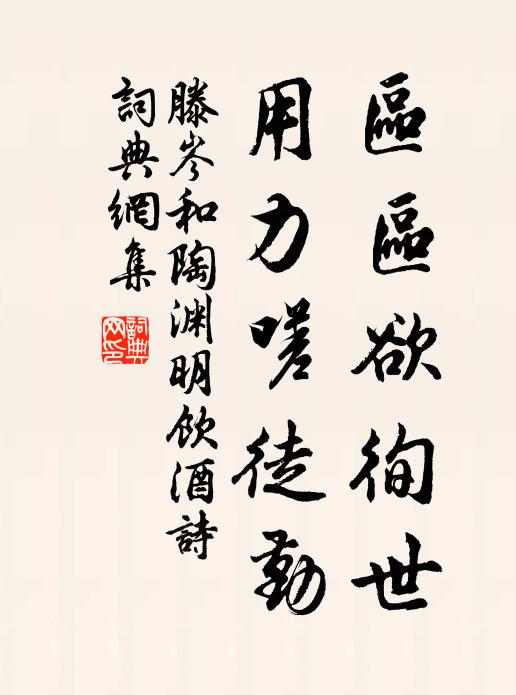 區區欲徇世
用力嗟徒勤
滕岑和陶渊明飲酒詩
詞典網集
詞典
网印